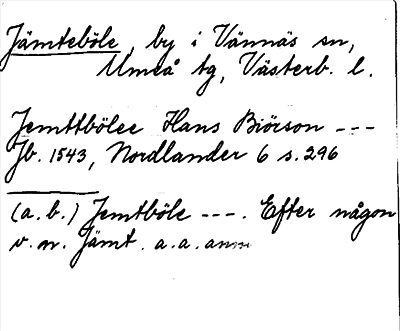 Jämteböle, by i Vännäs sn,
Umeå tg, Västerb. l.
Jemttbölee Hans Biörson ---
Jb. 1543, Nordlander 6 s. 296
(a.b.) Jemtböle ---. Efter någon
v. n. Jämt. a.a. anm